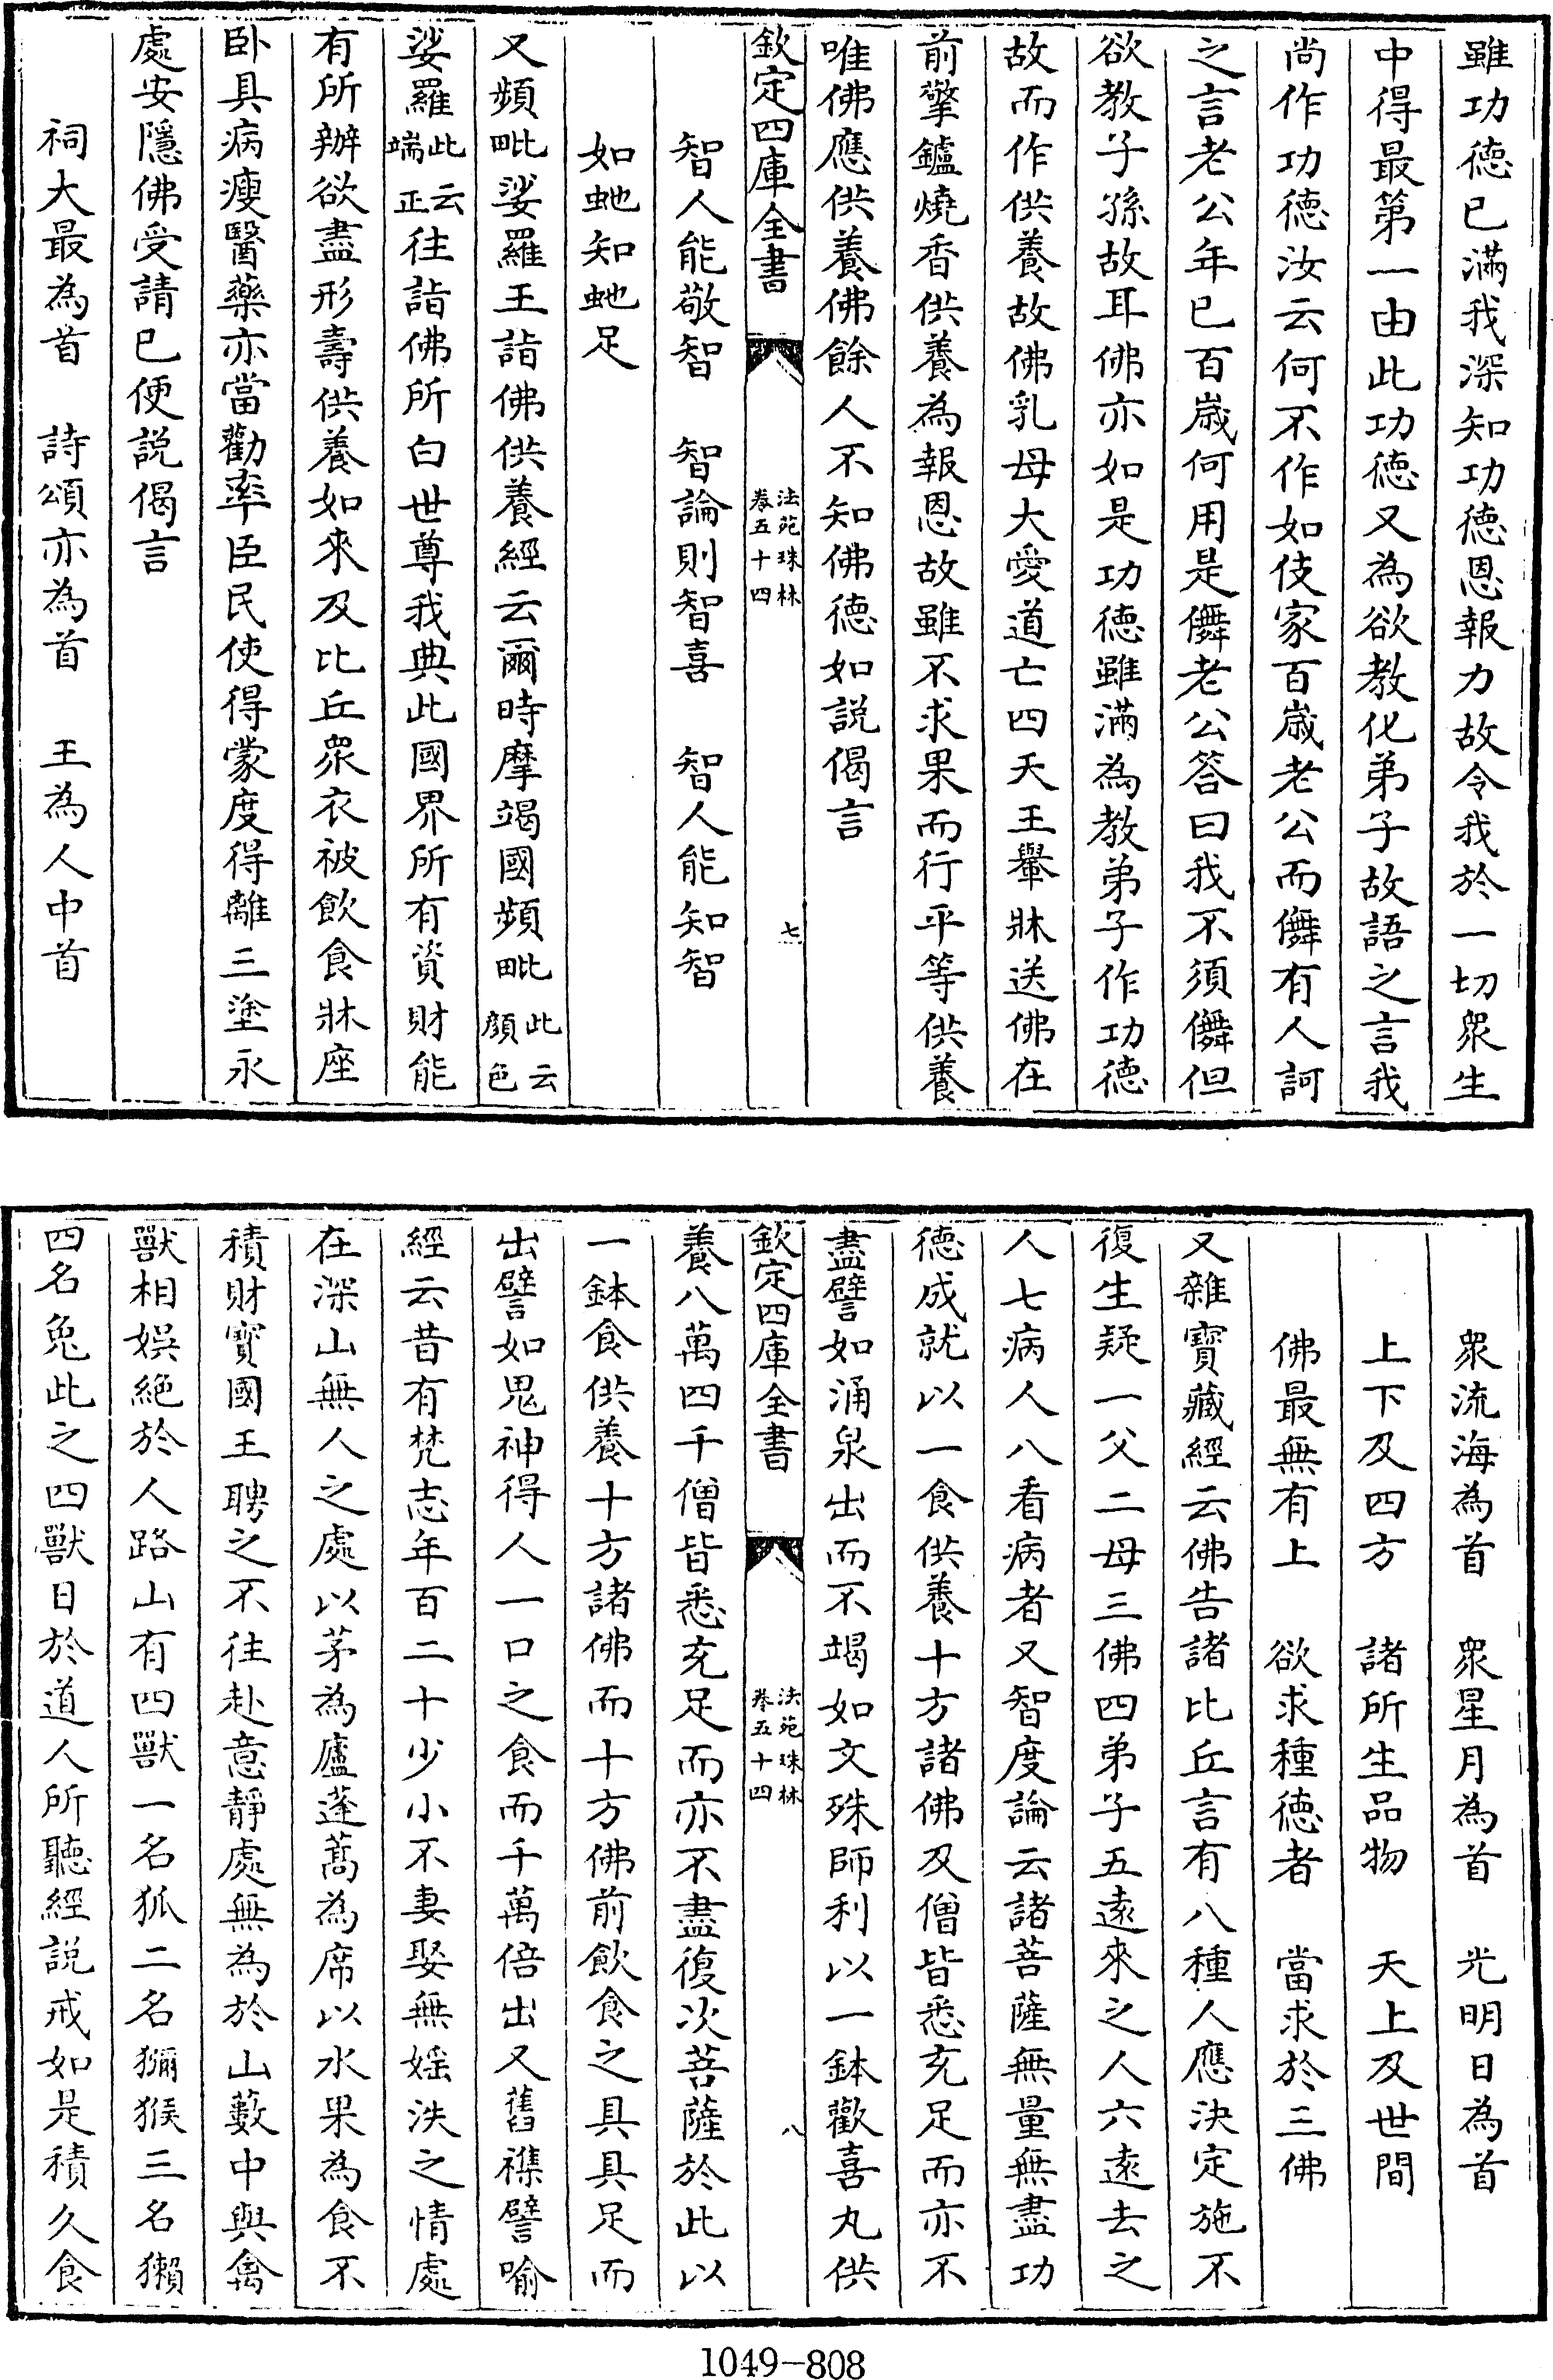 雖功德已滿我深知功德恩報力故令我於一切眾生
中得最第一由此功德又為欲教化弟子故語之言我
尚作功德汝云何不作如伎家百歲老公而儛有人訶
之言老公年已百歲何用是儛老公答曰我不須儛但
欲教子孫故耳佛亦如是功德雖滿為教弟子作功德
故而作供養故佛乳母大愛道亡四天王轝牀送佛在
前擎鑪燒香供養為報恩故雖不求果而行平等供養
唯佛應供養佛餘人不知佛德如說偈言
欽定四庫全書 法苑珠林 卷五十四 七
智人能敬智 智論則智喜 智人能知智
如虵知虵足
又頻毗娑羅王詣佛供養經云爾時摩竭國頻毗此云顏色
娑羅此云端正往詣佛所白世尊我典此國界所有資財能
有所辦欲盡形壽供養如來及比丘眾衣被飲食牀座
卧具病瘦醫藥亦當勸率臣民使得蒙度得離三塗永
處安隱佛受請已便說偈言
祠大最為首 詩頌亦為首 王為人中首
眾流海為首 眾星月為首 光明日為首
上下及四方 諸所生品物 天上及世間
佛最無有上 欲求種德者 當求於三佛
又雜寶藏經云佛告諸比丘言有八種人應決定施不
復生疑一父二母三佛四弟子五遠來之人六遠去之
人七病人八看病者又智度論云諸菩薩無量無盡功
德成就以一食供養十方諸佛及僧皆悉充足而亦不
盡譬如涌泉出而不竭如文殊師利以一鉢歡喜丸供
欽定四庫全書 法苑珠林 卷五十四 八
養八萬四千僧皆悉充足而亦不盡復次菩薩於此以
一鉢食供養十方諸佛而十方佛前飲食之具具足而
出譬如鬼神得人一口之食而千萬倍出又舊襍譬喻
經云昔有梵志年百二十少小不妻娶無婬泆之情處
在深山無人之處以茅為廬蓬蒿為席以水果為食不
積財寶國王聘之不往赴意靜處無為於山藪中與禽
獸相娛絕於人路山有四獸一名狐二名獼猴三名獺
四名兔此之四獸日於道人所聽經說戒如是積久食
1049-808